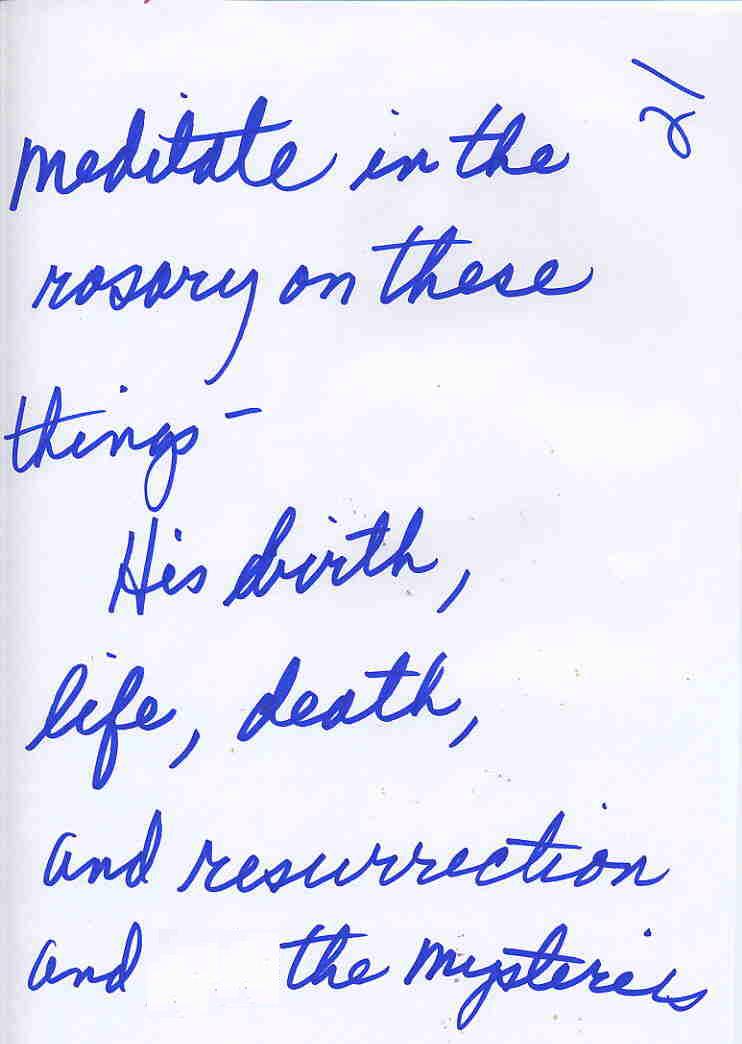 21
meditate in the
rosary on these
things –
His birth,
life, death,
and resurrection
and the mysteries